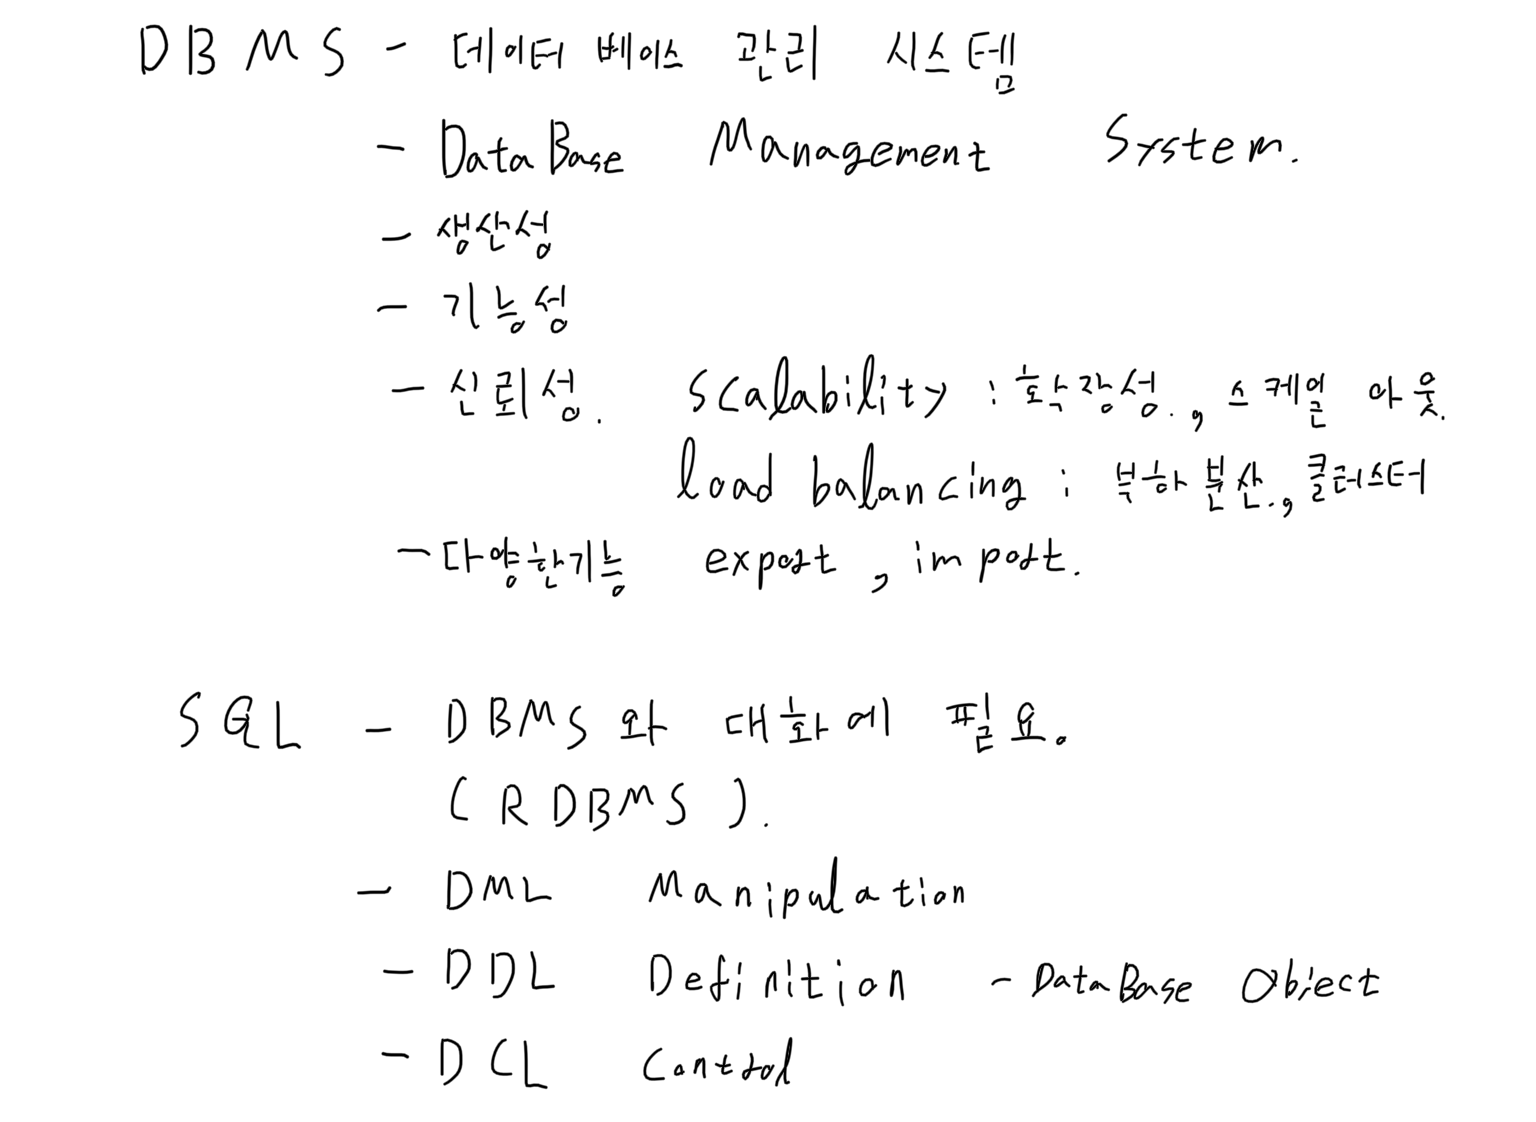 DBMS - 데이터베이스 관리 시스템
- DataBase Management System.
- 생산성
- 기능성
- 신뢰성. scalability : 확장성., 스케일 아웃.
load balancing : 부하분산., 클러스터
- 다양한기능 export, import.
SQL - DBMS와 대화에 필요.
(RDBMS).
- DML Manipulation
- DDL Definition - DataBase Object
- DCL Control